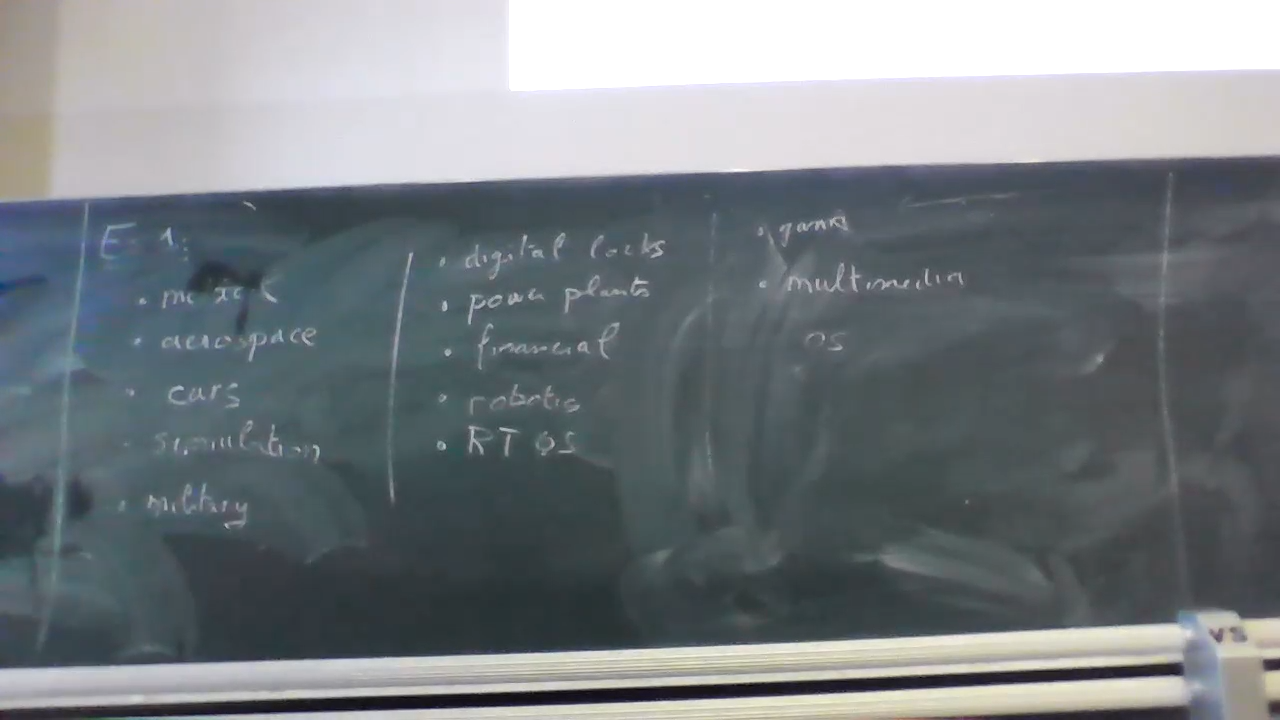 E 1:
• aerospace
• cars
• simulation
• military
• digital locks
• power plants
• financial
• robotis
• RT OS
• games
• multimedia
OS
VS